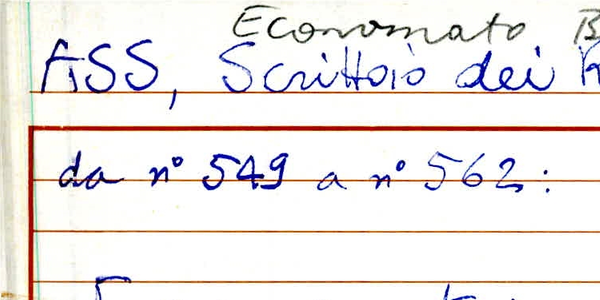 Economato
ASS, Scrittoio dei
da n° 549 a n° 562: